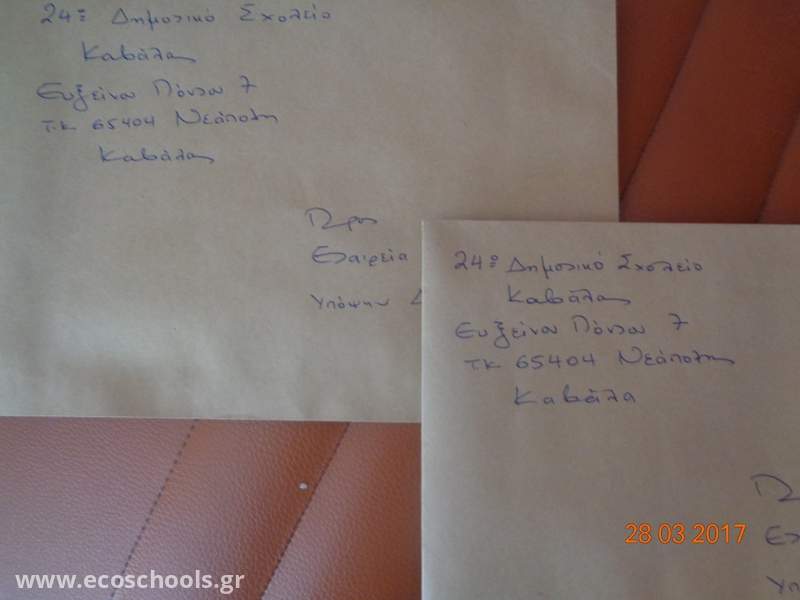 24ο Δημοτικό Σχολείο
Καβάλας
Ευξείνου Πόντου 7
Τ.Κ 65404 Νεάπολη
Καβάλας
Προς
Εταιρεία
Υπόψην Δ
24ο Δημοτικό Σχολείο
Καβάλας
Ευξείνου Πόντου 7
Τ.Κ 65404 Νεάπολης
Καβάλα
Π
Ετ
Υπο
28 03 2017
www.ecoschools.gr